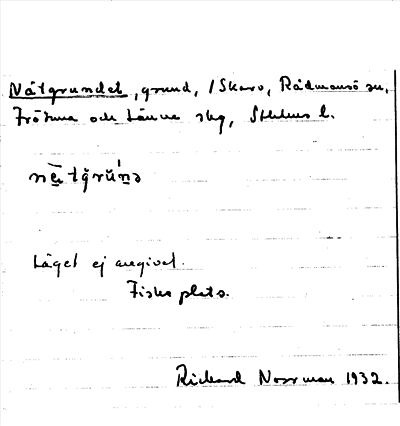 Nätgrundet, grund, /Skavo, Rådmansö sn,
Frötuna och Länna skg, Sthlms l.
nētgru̇nə
Läget ej angivet.
Fiskeplats.
Richard Norrman 1932.